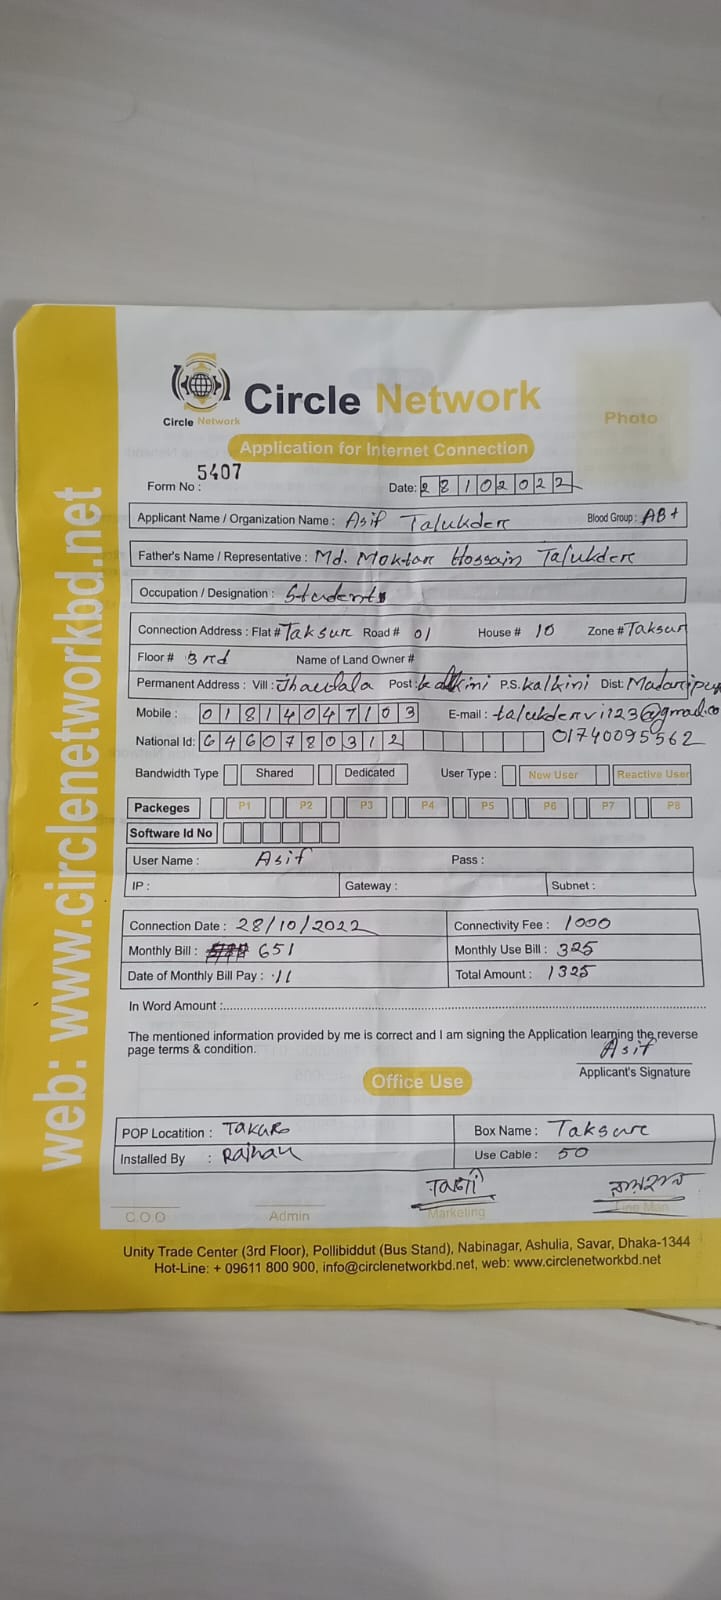 Circle Network
Circle Network
Photo
Application for Internet Connection
Form No : 5407
Date: 28102022
Applicant Name / Organization Name : Asif Talukder Blood Group : AB+
Father's Name / Representative : Md. Moktar Hossain Talukder
Occupation / Designation : Students
Connection Address : Flat # Taksur Road # 01 House # 10 Zone # Taksur
Floor # 3rd Name of Land Owner #
Permanent Address : Vill : Jhautala Post : kalkini P.S. kalkini Dist: Madaripur
Mobile : 01814047103 E-mail :
National Id: 6460780312 01740095562
Bandwidth Type Shared Dedicated User Type : New User Reactive User
Packeges P1 P2 P3 P4 P5 P6 P7 P8
Software Id No
User Name : Asif Pass :
IP : Gateway : Subnet :
Connection Date : 28/10/2022 Connectivity Fee : 1000
Monthly Bill : 651 Monthly Use Bill : 325
Date of Monthly Bill Pay : 11 Total Amount : 1325
In Word Amount :
The mentioned information provided by me is correct and I am signing the Application learning the reverse
page terms & condition.
Asif
Applicant's Signature
Office Use
POP Locatition : Box Name : Taksure
Installed By : Raihan Use Cable : 50
রায়হান
C.O.O Admin Marketing Line Man
Unity Trade Center (3rd Floor), Pollibiddut (Bus Stand), Nabinagar, Ashulia, Savar, Dhaka-1344
Hot-Line: + 09611 800 900, info@circlenetworkbd.net, web: www.circlenetworkbd.net
web: www.circlenetworkbd.net